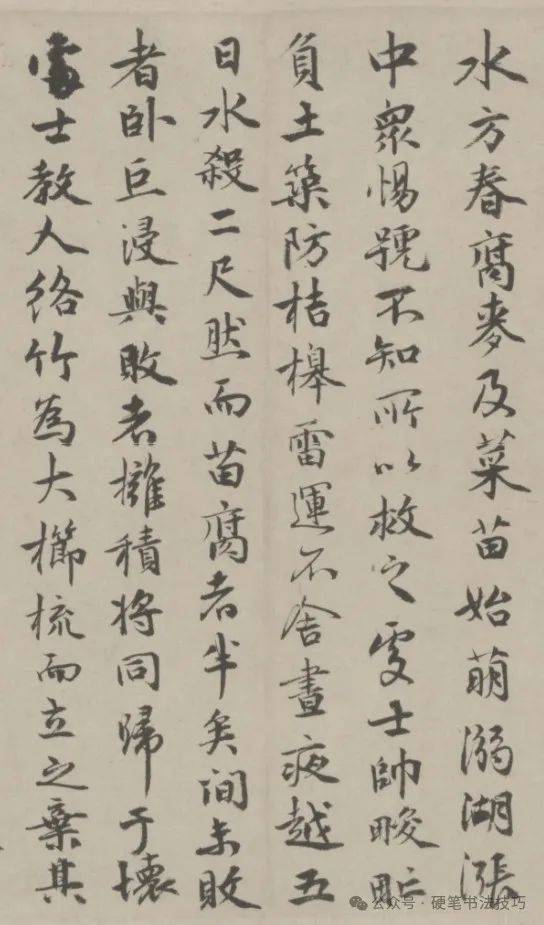 水方春腐麥及菜苗始萌溺湖漲
中眾惕號不知所以救之處士帥畯甿
負土築防桔槔雷運不舍晝夜越五
日水殺二尺然而苗腐者半矣間未敗
者卧巨浸與敗者擁積將同歸于壞
處士教人絡竹為大櫛梳而立之棄其
公众号·硬笔书法技巧